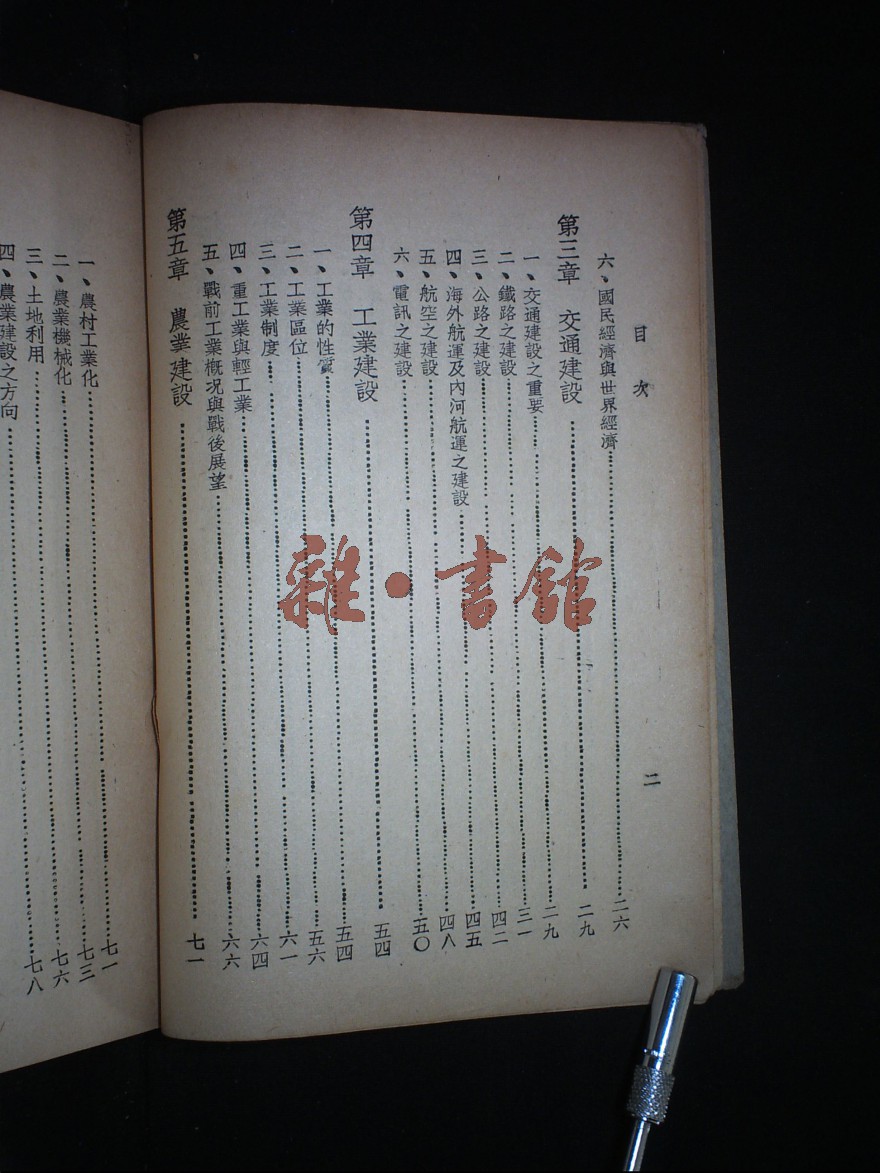 目次 二
六、國民經濟與世界經濟……二六
第三章 交通建設……二九
一、交通建設之重要……二九
二、鐵路之建設……三一
三、公路之建設……四二
四、海外航運及內河航運之建設……四五
五、航空之建設……四八
六、電訊之建設……五〇
第四章 工業建設……五四
一、工業的性質……五四
二、工業區位……五六
三、工業制度……六一
四、重工業與輕工業……六四
五、戰前工業概况與戰後展望……六六
第五章 農業建設……七一
一、農村工業化……七一
二、農業機械化……七三
三、土地利用……七六
四、農業建設之方向……七八
雜·書館